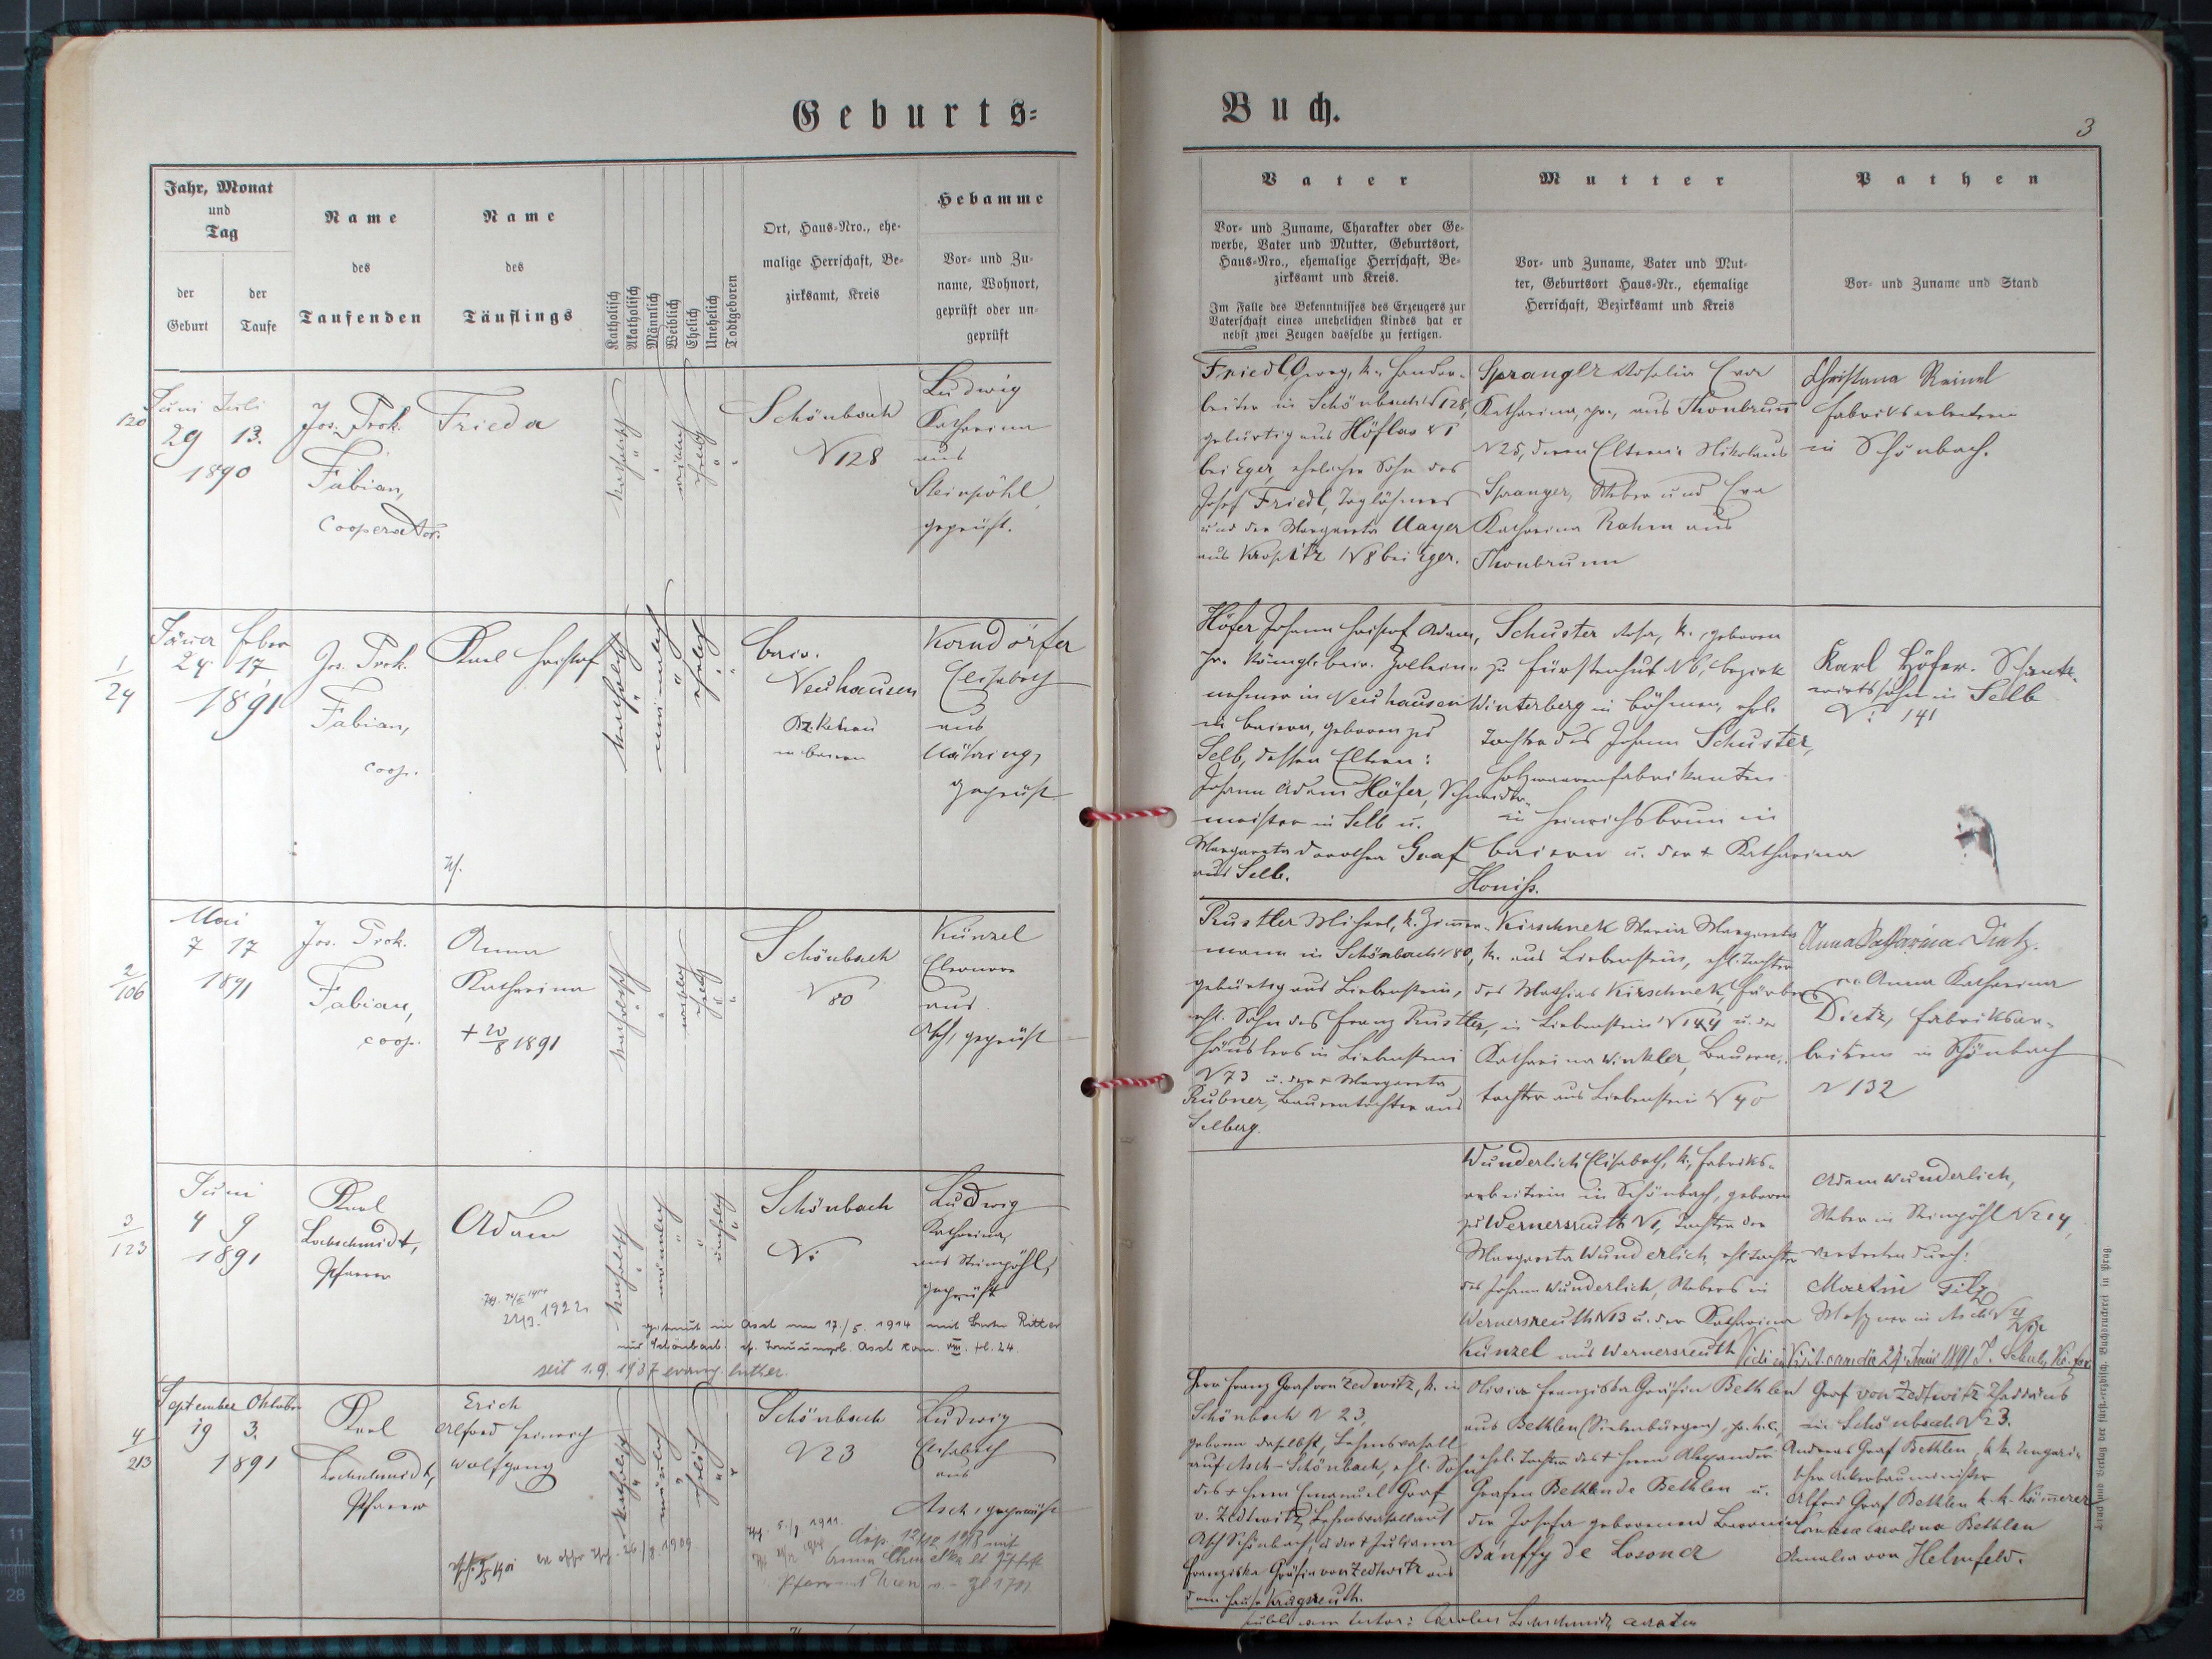 Geburts=
Buch.
3
Jahr, Monat
und
Tag
der
Geburt
der
Taufe
Name
des
Taufenden
Name
des
Täuflings
Katholisch
Akatholisch
Männlich
Weiblich
Ehelich
Unehelich
Todtgeboren
Ort, Haus-Nro., ehe-
malige Herrschaft, Be-
zirksamt, Kreis
Hebamme
Vor- und Zu-
name, Wohnort,
geprüft oder un-
geprüft
Vater
Vor- und Zuname, Charakter oder Ge-
werbe, Vater und Mutter, Geburtsort,
Haus-Nro., ehemalige Herrschaft, Be-
zirksamt und Kreis.
Im Falle des Bekenntnisses des Erzeugers zur
Vaterschaft eines unehelichen Kindes hat er
nebst zwei Zeugen dasselbe zu fertigen.
Mutter
Vor- und Zuname, Vater und Mut-
ter, Geburtsort Haus-Nr., ehemalige
Herrschaft, Bezirksamt und Kreis
Pathen
Vor- und Zuname und Stand
120
Juni Juli
29 13.
1890
Jos. Prok.
Fabian,
Cooperator.
Frieda
katholisch
weiblich
ehelich
Schönbach
N 128
Ludwig
Katharina
aus
Steinpöhl,
geprüft.
Friedl Georg, k., Handar-
beiter in Schönbach N 128,
gebürtig aus Höflas N 1
bei Eger, ehelicher Sohn des
Josef Friedl, Taglöhners
und der Margareta Mayer
aus Kropitz N 8 bei Eger.
Spranger Rosalia Eva
Katharina, pr., aus Thonbrunn
N 25, deren Eltern: Nikolaus
Spranger, Weber und Eva
Katharina Rahm aus
Thonbrunn
Christiana Reinel
Fabriksarbeiterin
in Schönbach.
1
24
Jäner Feber
24 17
1891
Jos. Prok.
Fabian,
coop.
Karl Christof
katholisch
männlich
ehelich
bair.
Neuhausen
Bz. Rehau
in Baiern
Korndörfer
Elisabeth
aus
Mähring,
geprüft
Höfer Johann Christof Adam,
pr. königl. bair. Zollein-
nehmer in Neuhausen
in Baiern, geboren zu
Selb, dessen Eltern:
Johann Adam Höfer, Schneider-
meister in Selb u.
Margareta Dorothea Graf
aus Selb.
Schuster Rosa, k., geboren
zu Fürstenhut N 6, Bezirk
Winterberg in Böhmen, ehel.
Tochter des Johann Schuster,
Holzwaarenfabrikanten
in Heinrichsbrun in
Baiern u. der + Katharina
Honiss.
Karl Höfer. Schank-
wirtssohn in Selb
N: 141
2
106
Mai
7 17
1891
Jos. Prok.
Fabian,
coop.
Anna
Katharina
+ 20/8 1891
katholisch
weiblich
ehelich
Schönbach
N 80
Künzel
Eleonore
aus
Asch, geprüft
Rustler Michael, k. Zimmer-
mann in Schönbach N 80,
gebürtig aus Liebenstein,
ehl. Sohn des Franz Rustler,
Häuslers in Liebenstein
N 73 u. der + Margareta
Rubner, Bauerntochter aus
Selberg.
Kirschnek Maria Margareta
k. aus Liebenstein, ehl. Tochter
des Mathias Kirschnek, Färbers
in Liebenstein N 144 u. der
Katharina Winkler, Bauern-
tochter aus Liebenstein N 40
Anna Katharina Dietz.
Anna Katharina
Dietz, Fabriksar-
beiterin in Schönbach
N 132
3
123
Juni
4 9
1891
Karl
Lochschmidt,
Pfarrer
Adam
1922
katholisch
männlich
unehelich
Schönbach
N:
Ludwig
Katharina,
aus Steinpöhl,
geprüft
getraut in Asch am 17./5. 1914 mit Berta Ritter
aus Schönbach. cf. Trauungsb. Asch tom. VIII. fol. 24.
seit 1.9.1937 evang. luther.
Wunderlich Elisabeth, k., Fabriks-
arbeiterin in Schönbach, geboren
zu Wernersreuth N 1, Tochter der
Margareta Wunderlich, ehl. Tochter
des Johann Wunderlich, Webers in
Wernersreuth N 13 u. der Katharina
Künzel aus Wernersreuth
Adam Wunderlich,
Weber in Steinpöhl N 214,
vertreten durch:
Martin
Messner in Asch
4
213
September Oktober
19 3.
1891
Karl
Lochschmidt,
Pfarrer
Erich
Alfred Heinrich
Wolfgang
katholisch
männlich
ehelich
Schönbach
N 23
Ludwig
Elisabeth
aus
Asch, geprüft
Herr Franz Graf von Zedwitz, k. in
Schönbach N 23,
geboren daselbst, Lehnsvasall
auf Asch-Schönbach, ehl. Sohn
des + Herrn Emanuel Graf
v. Zedtwitz, Lehnsvasall auf
Asch Schönbach, u. der + Juliana
Franziska Gräfin von Zedtwitz aus
dem Hause Krugsreuth.
Olivia Franziska Gräfin Bethlen
aus Bethlen (Siebenbürgen)
ehel. Tochter des + Herrn Alexander
Grafen Bethlen de Bethlen u.
der Josefa geborenen Baronin
Bánffy de Losoncz
Graf von Zedtwitz
in Schönbach N 23.
Andreas Graf Bethlen, k. k. Ungari-
scher Ackerbauminister
Alfred Graf Bethlen k. k. Kämmerer
Carolina Bethlen
Amalia von Helmfeld.
Druck und Verlag der fürst-erzbischöfl. Buchdruckerei in Prag.